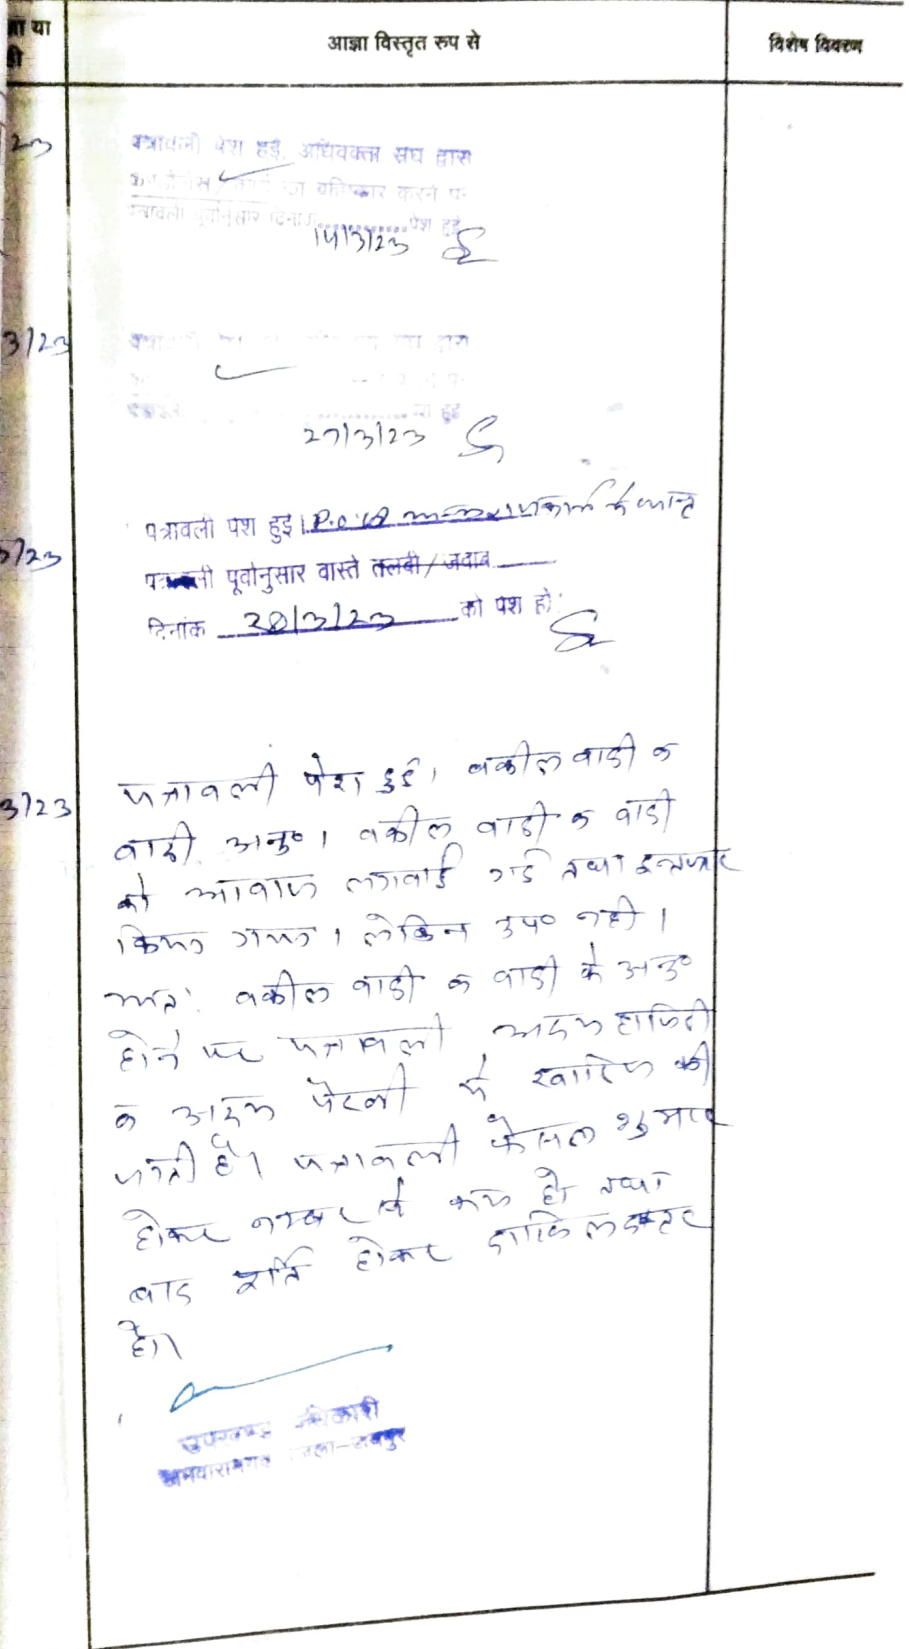 या
आज्ञा विस्तृत रुप से
विशेष विवरण
23
पत्रावली पेश हुई, अधिवक्ता संघ द्वारा
का बहिष्कार करने प
पत्रावली पूर्वानुसार दिनांक ............ पेश हुई
14/3/23
3/23
द्वारा
............ हुई
27/3/23
पत्रावली पेश हुई। P.O. के
/23
पूर्वानुसार वास्ते तलबी / जवाब
दिनांक 28/3/23 को पेश हो
पत्रावली पेश हुई। वकील वादी व
3/23
वादी अनु०। वकील वादी व वादी
को आवाज लगवाई गई तथा इन्तजार
किया गया। लेकिन उप० नही।
अतः वकील वादी व वादी के अनु०
होने पर पत्रावली अदम हाजिरी
व अदम पैरवी मे खारिज की
जाती है। पत्रावली फैसल शुमार
होकर नम्बर से कम हो तथा
बाद पूर्ति होकर दाखिल दफ्तर
हो।
उपखण्ड अधिकारी
जमवारामगढ़ जिला-जयपुर